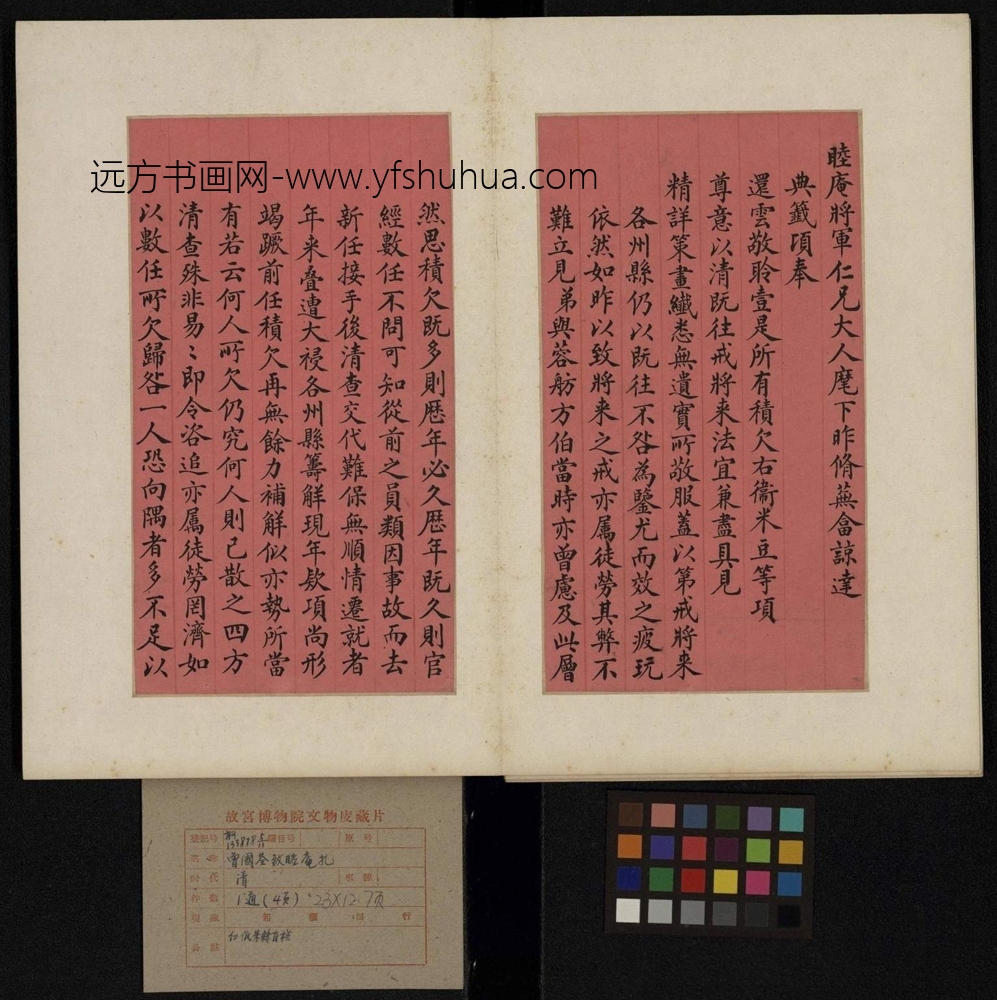 睦庵將軍仁兄大人麾下昨脩蕪畣諒達
典籤項奉
還雲敬聆壹是所有積欠右衞米豆等項
尊意以清既往戒將来法宜兼盡具見
精詳策畫纖悉無遺實所敬服蓋以第戒將来
各州縣仍以既往不咎為鑒尤而效之疲玩
依然如昨以致將来之戒亦属徒勞其弊不
難立見弟與蓉舫方伯當時亦曾慮及此層
然思積欠既多則歷年必久歷年既久則官
經數任不問可知從前之員類因事故而去
新任接手後清查交代難保無順情遷就者
年来叠遭大祲各州縣籌解現年欵項尚形
竭蹶前任積欠再無餘力補解似亦勢所當
有若云何人所欠仍究何人則已散之四方
清查殊非易〻即令咨追亦属徒勞罔濟如
以數任所欠歸咎一人恐向隅者多不足以
远方书画网-www.yfshuhua.com
故宮博物院文物庋藏片
登記号
原号
名称 曾國荃致睦庵札
时代 清
件数 1通(4頁) 23×12.7
現藏 箱 櫃 行